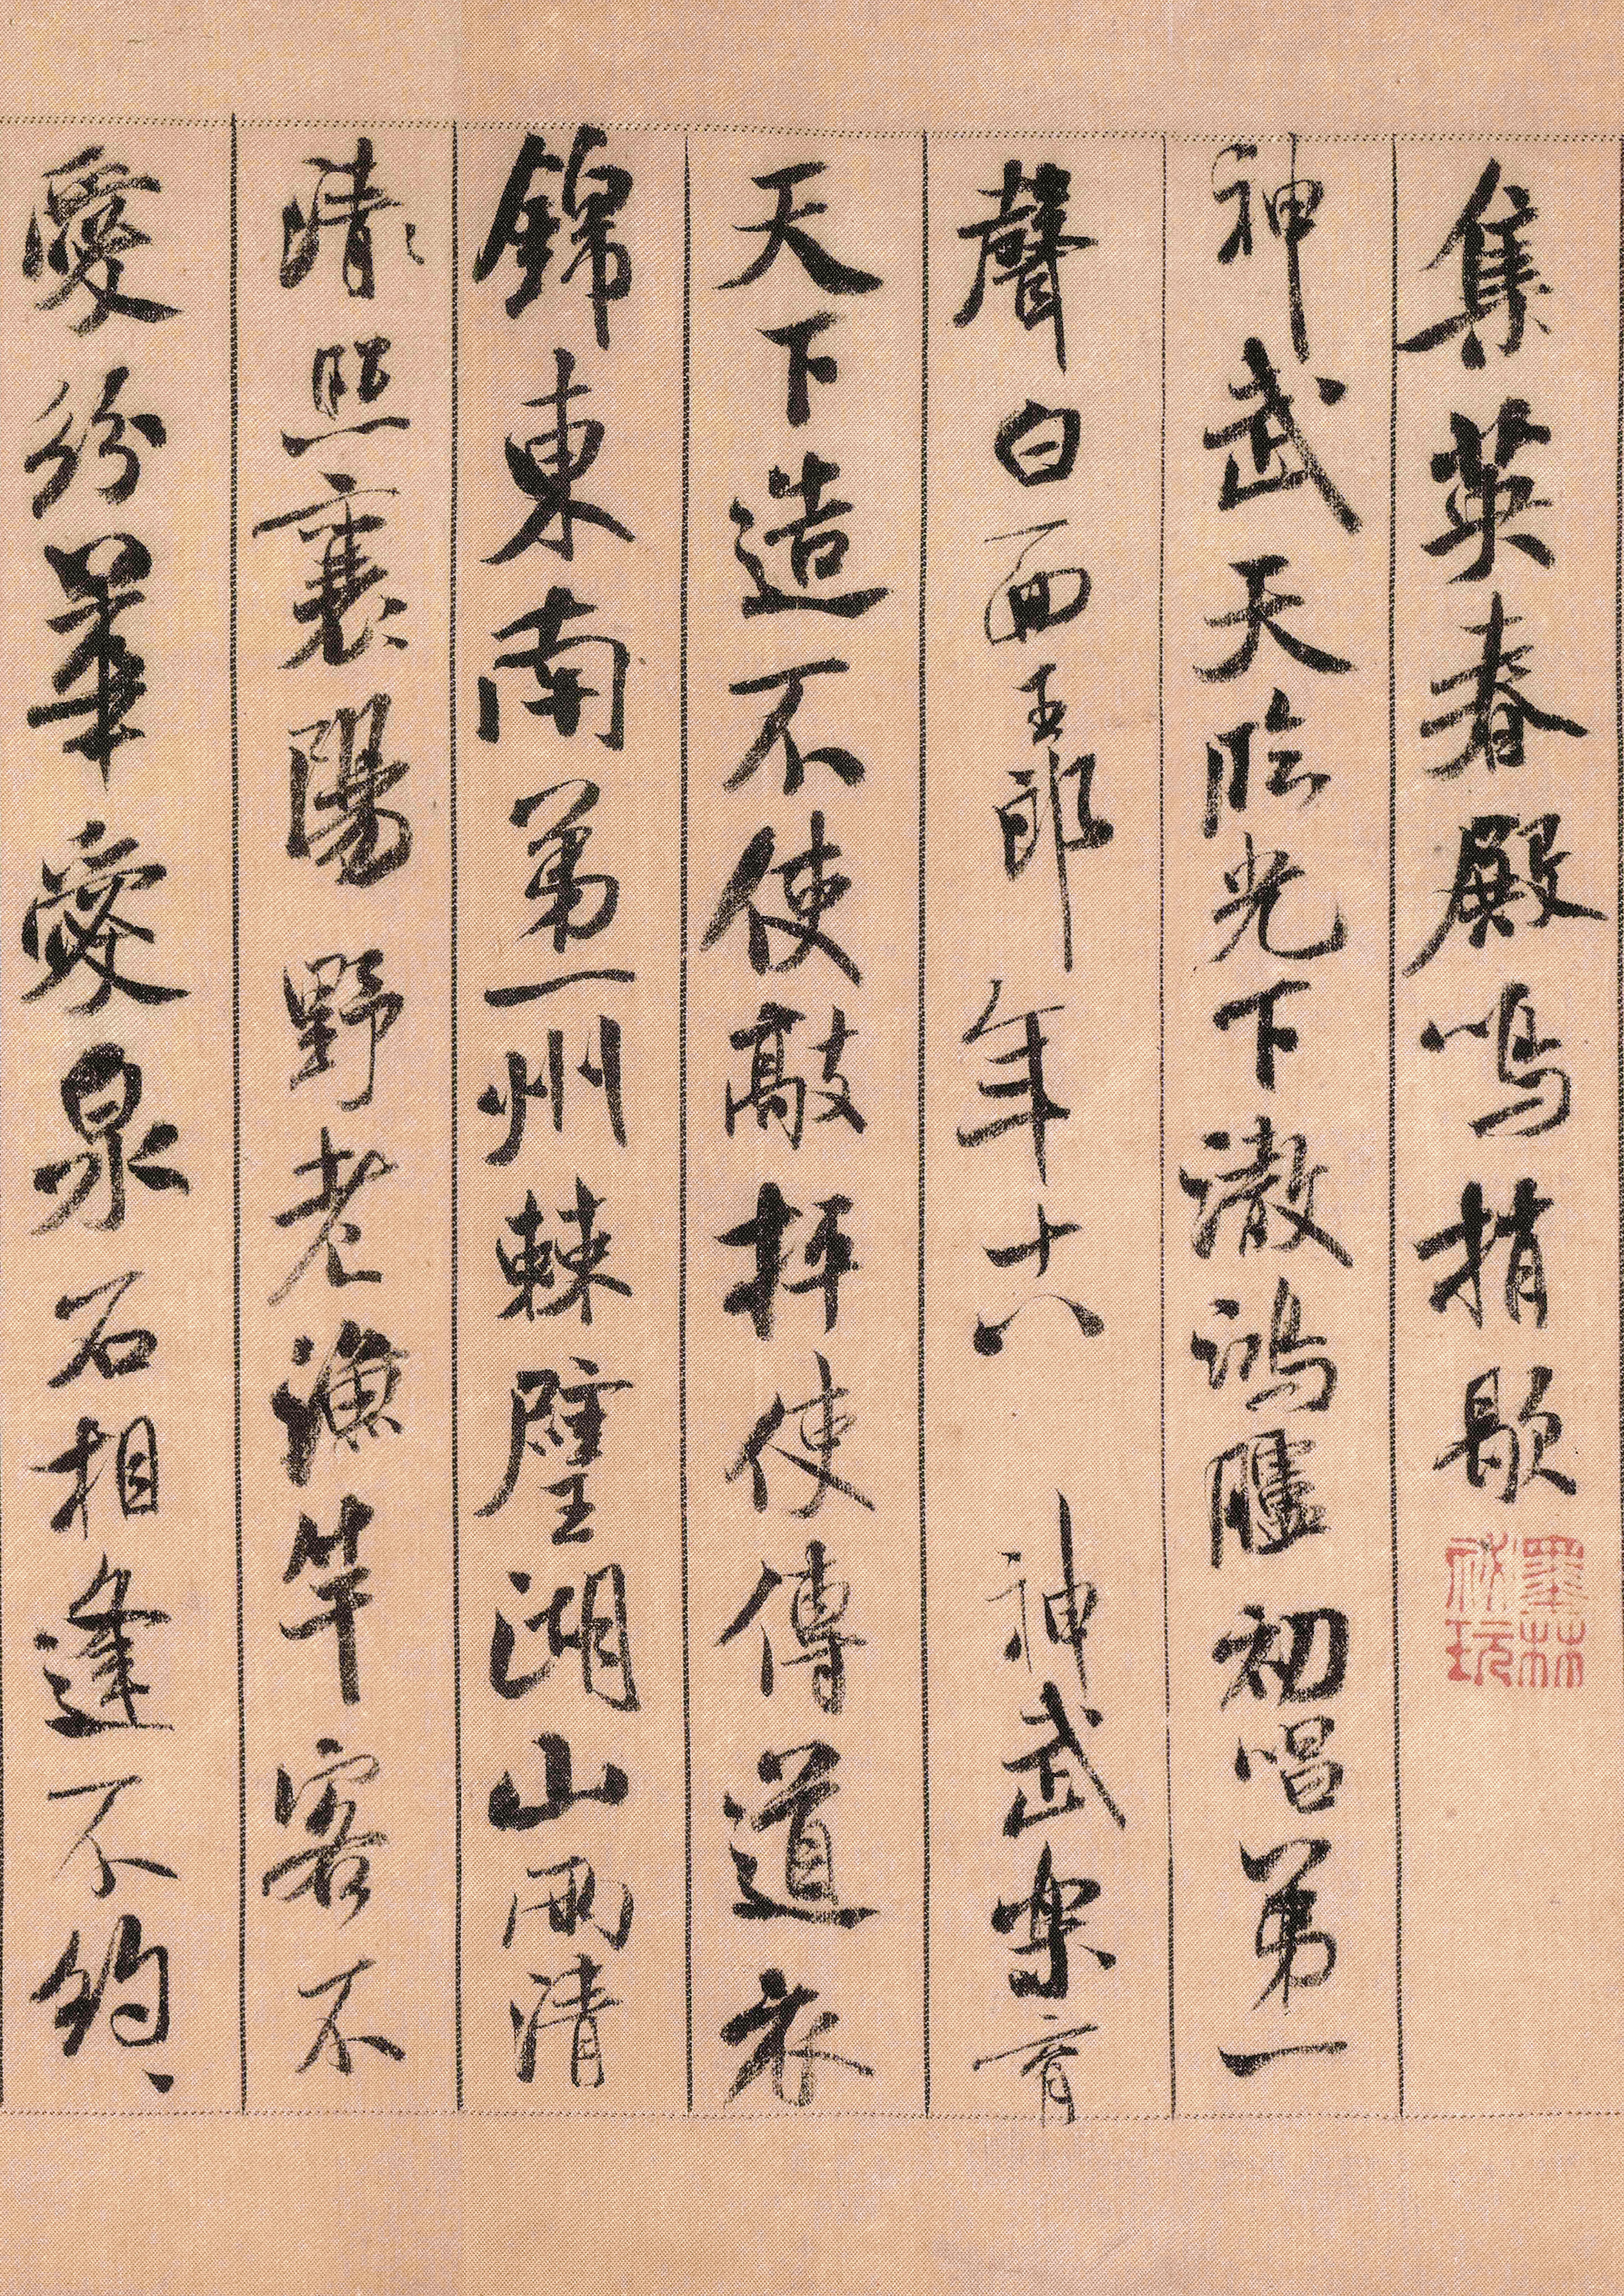 集英春殿鳴捎歇
神武天臨光下澈鴻臚初唱第一
聲白面王郎年十八神武樂育
天下造不使敲枰使傳道衣
錦東南第一州棘璧湖山兩清
照襄陽野老漁竿客不
愛紛華愛泉石相逢不約
墨林秘玩